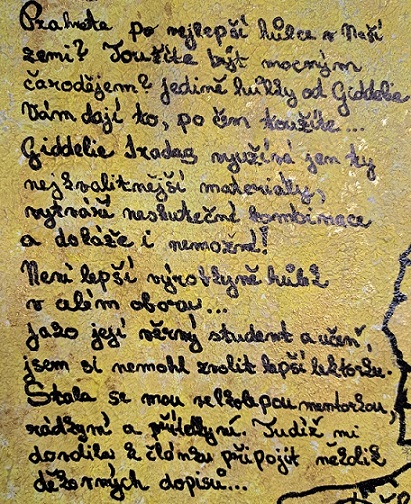 Prahnete po nejlepší hůlce v Naší
zemi? Toužíte být mocným
čarodějem? Jedině hůlky od Giddelie
Vám dají to, po čem toužíte...
Giddelie Tradag využívá jen ty
nejkvalitnější materiály,
vytváří neskutečné kombinace
a dokáže i nemožné!
Není lepší výrobkyně hůlek
v celém oboru...
Jako její věrný student a učeň,
jsem si nemohl zvolit lepší lektorku.
Stala se mou velkolepou mentorkou,
rádkyní a přítelkyní. Tudíž mi
dovolila k článku připojit několik
děkovných dopisů...